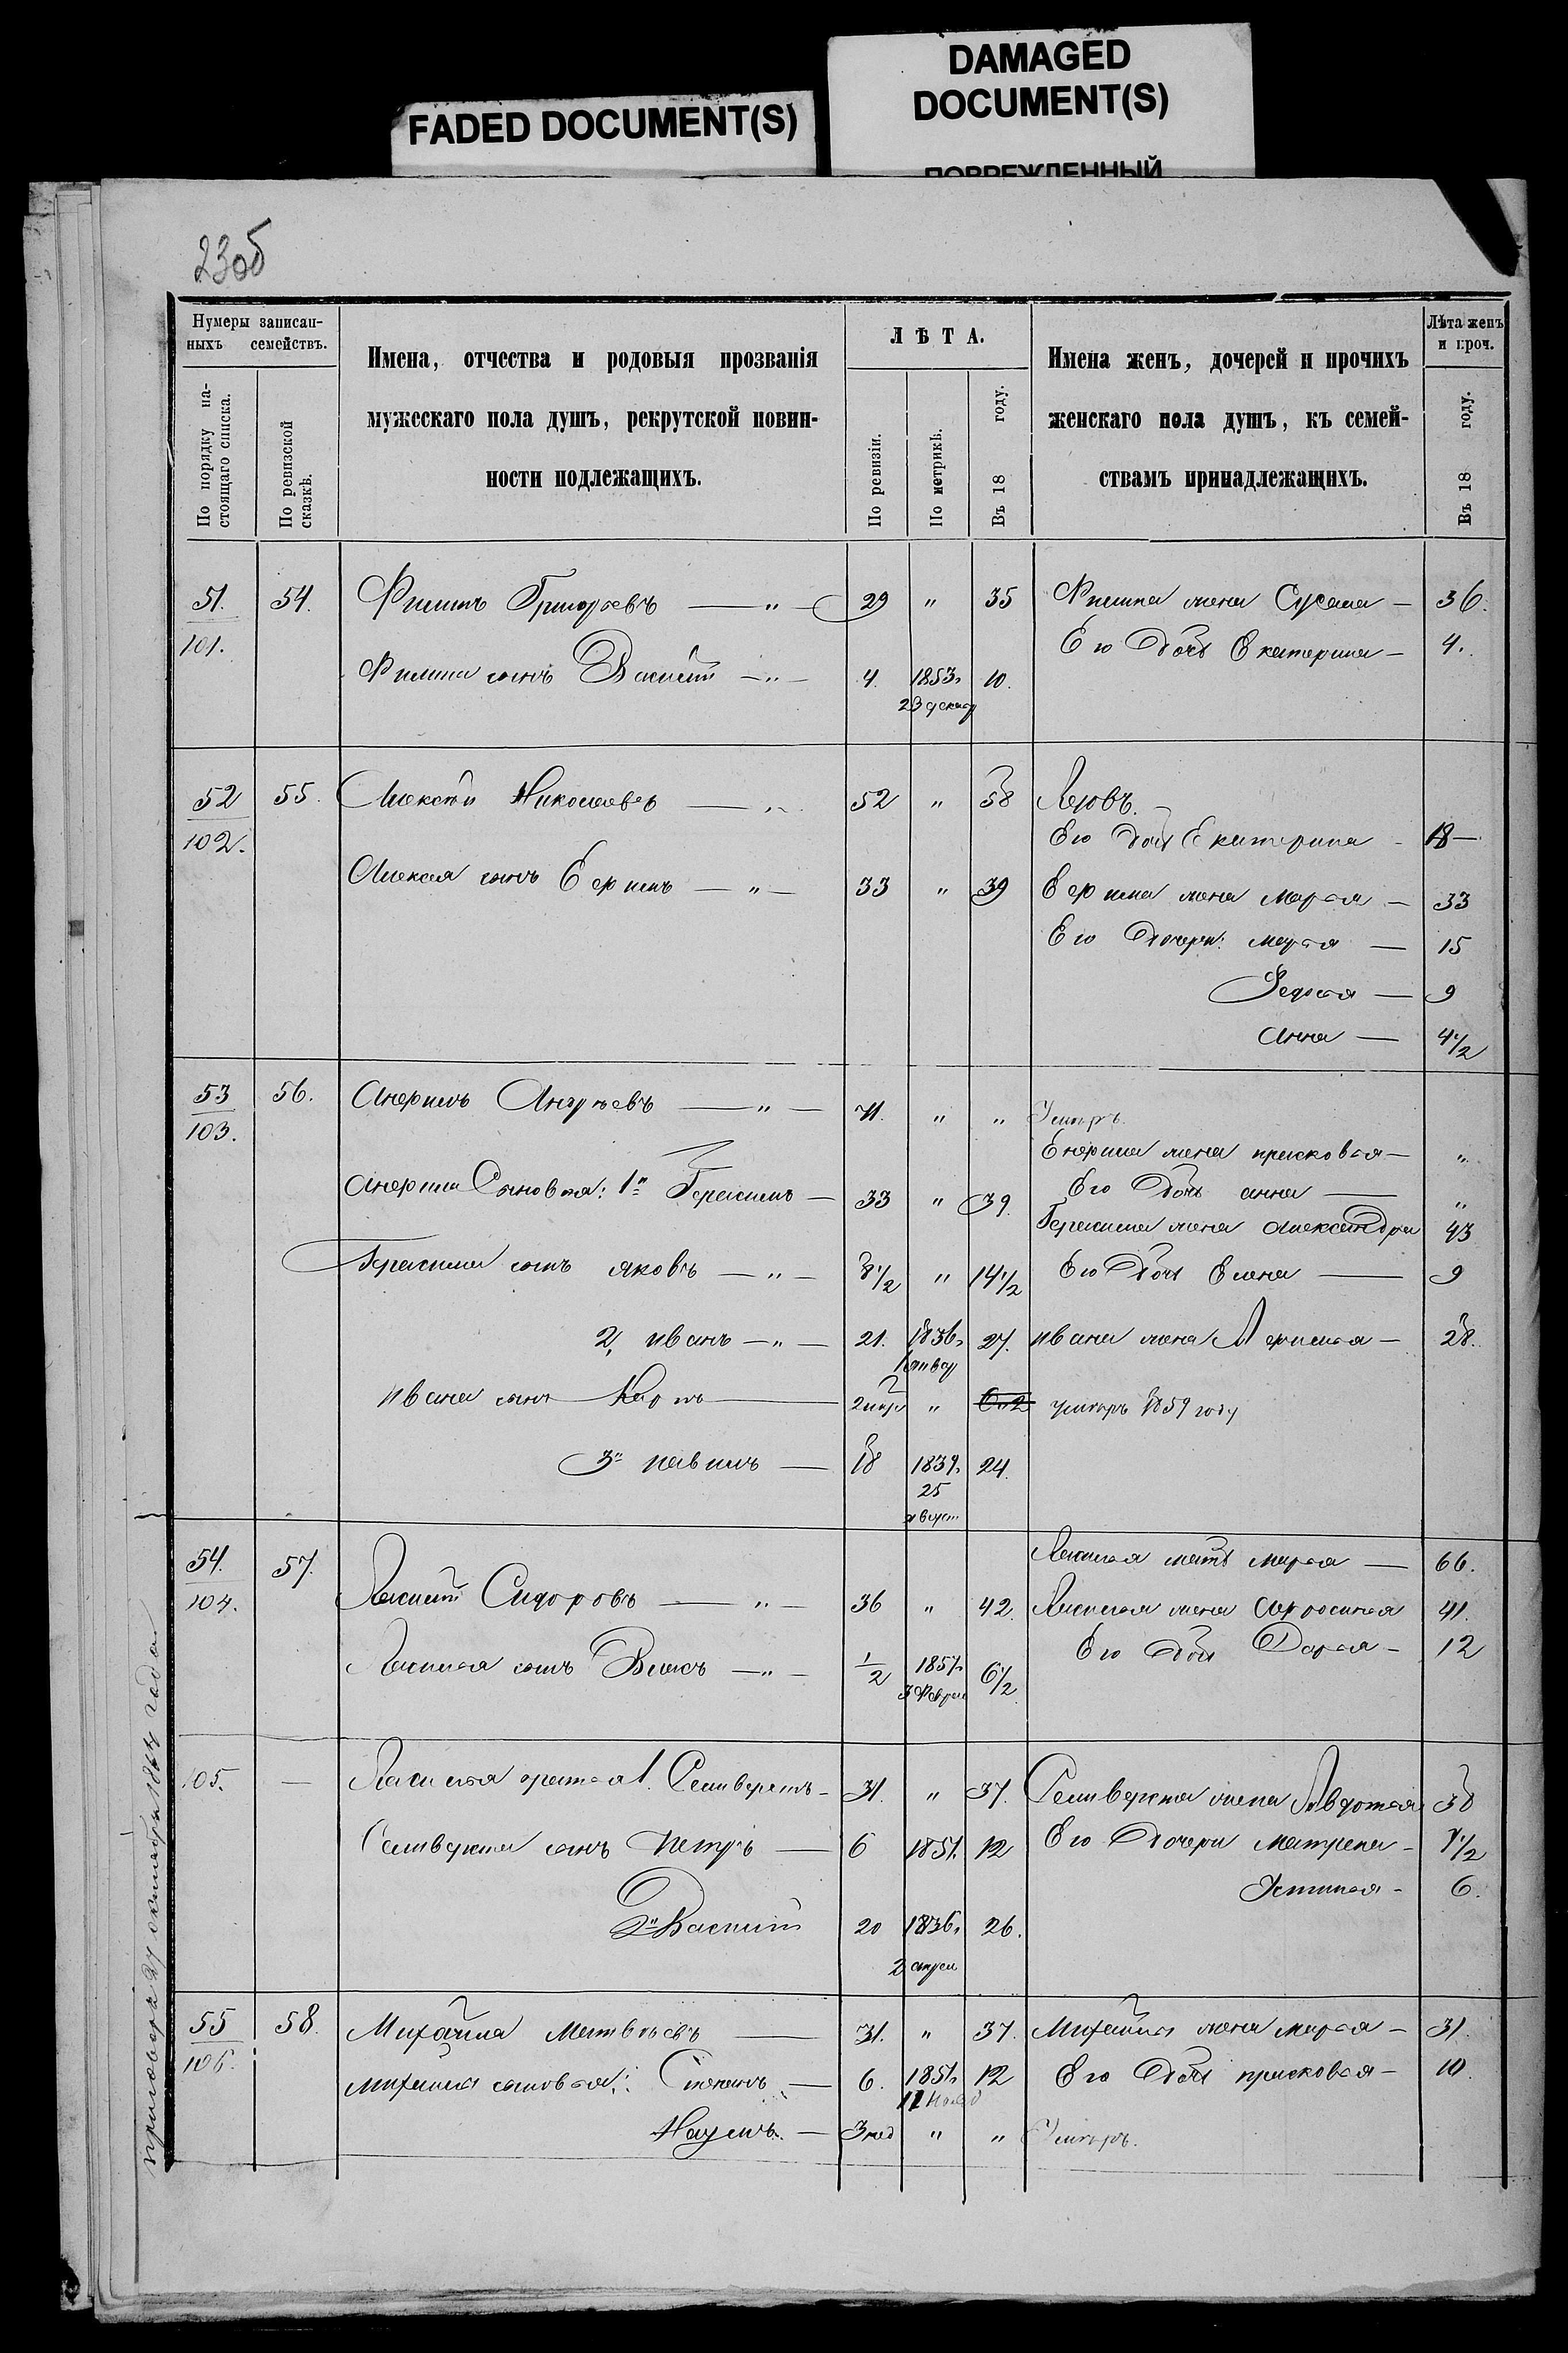 FADED DOCUMENT(S)
DAMAGED
DOCUMENT(S)
ПОВРЕЖДЕННЫЙ
23об
Нумеры записан-
ныхъ семействъ.
По порядку на-
стоящаго списка.
По ревизской
сказкѣ.
Имена, отчества и родовыя прозванія
мужескаго пола душъ, рекрутской повин-
ности подлежащихъ.
ЛѢТА.
По ревизіи.
По метрикѣ.
Въ 18 году.
Имена женъ, дочерей и прочихъ
женскаго пола душъ, къ семей-
ствамъ принадлежащихъ.
Лѣта женъ
и проч.
Въ 18 году.
51. 54. Филипъ Григорьевъ — " — 29 " 35 Филипа жена — 36.
101. Его дочь Екатерина — 4.
Филипа сынъ Василій — " — 4. 1853. 10.
23 декаб
52 55. Алексѣй Николаевъ — " 52 " 58 Вдовъ.
102. Его дочь Екатерина - 18 —
Алексея сынъ — " — 33 " 39 жена Марья — 33
Его дочери: Марья — 15
9
Анна — 4 1/2
53 56. Андреевъ — " — 71. " " Умеръ.
103. жена Прасковья — "
Сыновья: 1й Герасимъ — 33 " 39. Его дочь Анна — "
Герасима жена Александра 43
Герасима сынъ Яковъ — " — 8 1/2 " 14 1/2 Его дочь Елена — 9
2, Иванъ — " — 21. 1836. 27. Ивана жена — 28.
1 январ
Ивана сынъ — " умеръ 1859 году
3й — 18 1839. 24.
25
август
54. 57. Василія мать Марья — 66.
104. Василій Сидоровъ — " — 36 " 42. Василія жена 41.
Его дочь Дарья — 12
Василія сынъ Власъ — " — 1/2 1857. 6 1/2
3 Феврал
105. — Василія братья 1. Селиверстъ - 31. " 37. Селиверста жена Авдотья 38
Селиверста сынъ Петръ — 6 1851. 12 Его дочери Матрена - 7 1/2
Устинья - 6.
2й Василій 20 1836. 26.
2 апрел
55 58. Михайла Матвѣевъ — 31. " 37. Михайла жена Марья — 31.
106. Михайла сыновья: Степанъ — 6. 1851. 12 Его дочь Прасковья — 10.
Наумъ. — 3 нед " " Умеръ.